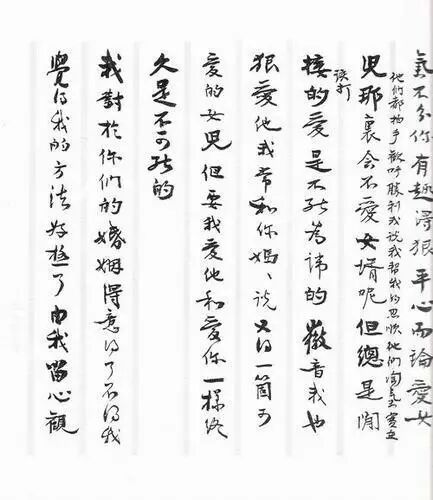 氣不分你有趣得狠平心而論愛女
他們都拍手歡呼勝利我說我幫我的思順他們淘氣實在
該打
兒那裏會不愛女壻呢但總是間
接的愛是不能為諱的徽音我也
狠愛他我常和你媽、說又得一個可
愛的女兒但要我愛他和愛你一樣終
久是不可能的
我對於你們的婚姻得意得了不得我
覺得我的方法好極了由我留心觀